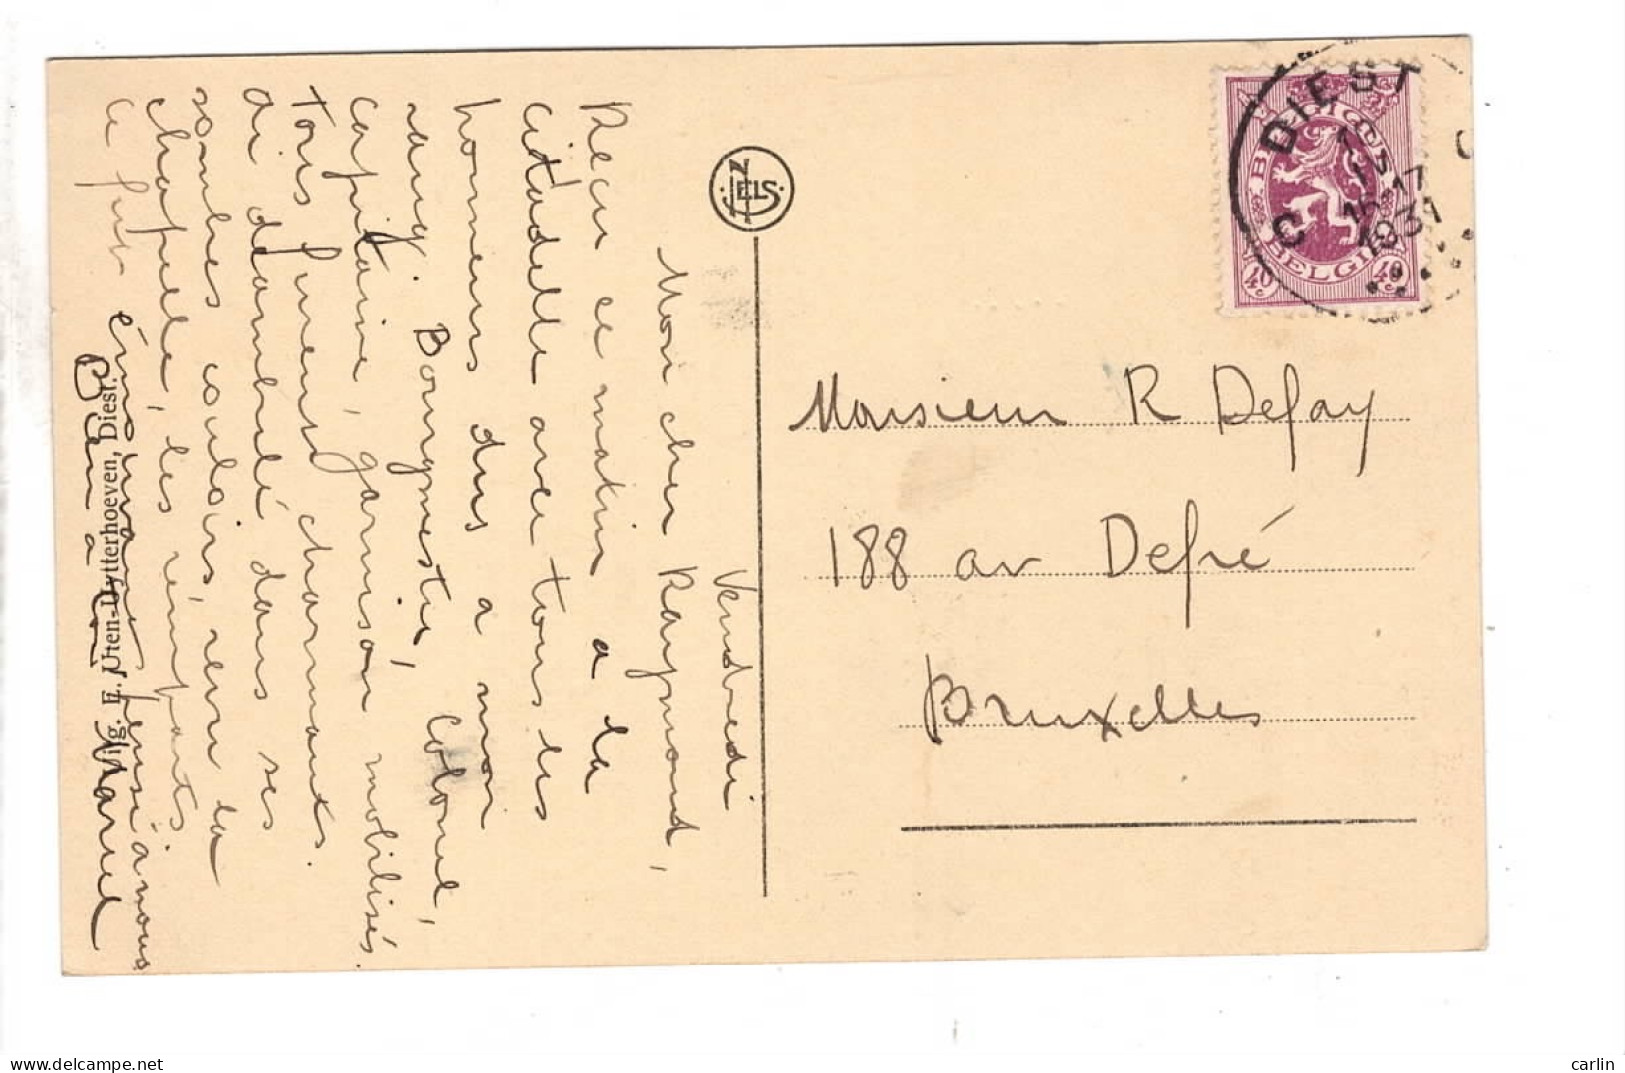 Vendredi
Mon cher Raymond,
Recu ce matin a la
citadelle avec tous les
honneurs dus a mon
rang. Bourgmestre, Colonel,
capitaine, garnison mobilisés.
Tous furent charmants.
ai déambulé dans ses
sombres couloirs, revu la
chapelle, les remparts
ce fut émouvant pensé à nous
Bien à toi Marcel
Uitg. F. Uten-Uytterhoeven, Diest.
NELS
DIEST
17
1931
C C
BELGIQUE
BELGIË
40 c 40 c
Monsieur R Defay
188 av Defré
Bruxelles
carlin
delcampe.net